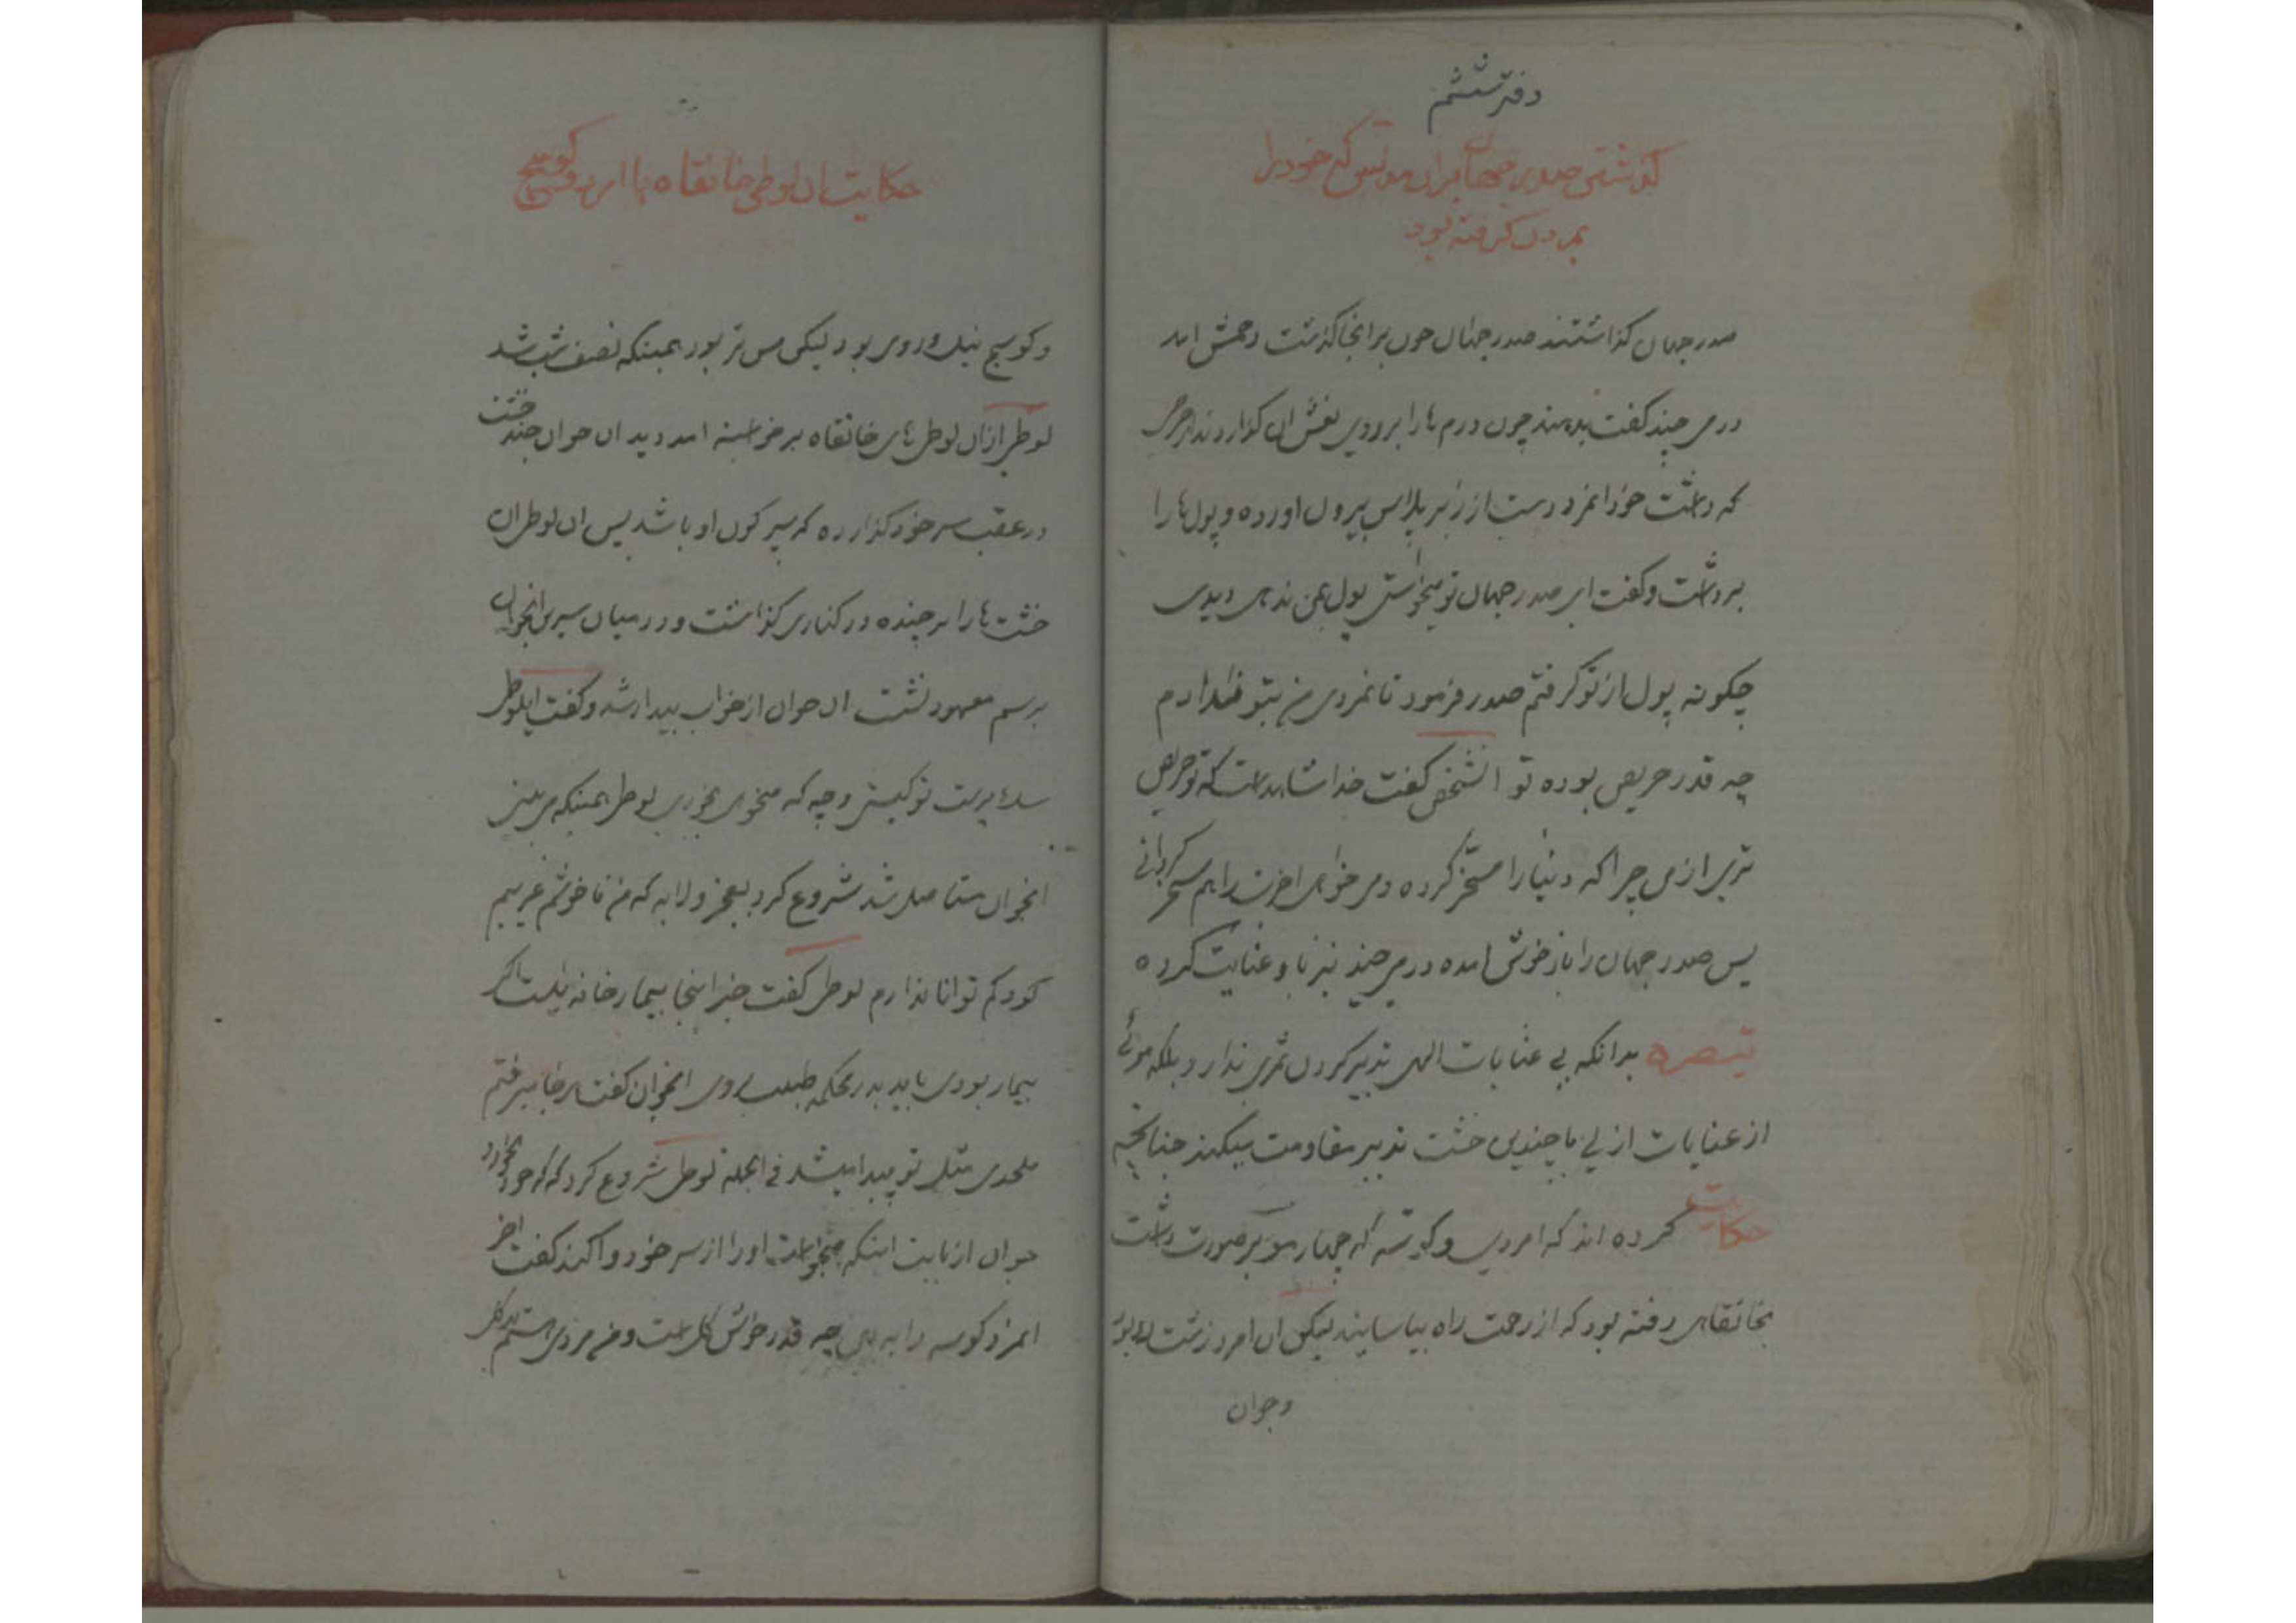 دفتر ششم
گذشتن صدر جهان بران مفلس که خود را
بمردن گرفته بود
صدر جهان گذاشتند صدر جهان چون بر انجا گذشت رحمش امد
درمی چند گفت بدهند چون درم ها را بر روی نعش ان گذاردند از حرص
که داشت خود انمرد دست از زیر پلاس بیرون اورده و پول ها را
برداشت و گفت ای صدر جهان تو میخواستی پول بمن ندهی دیدی
چگونه پول از تو گرفتم صدر فرمود تا نمردی من بتو ندادم
چه قدر حریص بوده تو انشخص گفت خدا شاهد است که تو حریص
تری از من چرا که دنیا را مسخر کرده و می خواهی اخرت را هم مسخر گردانی
پس صدر جهان را باز خوش امده درمی چند نیز باو عنایت کرده
تبصره بدانکه بی عنایات الهی تدبیر کردن ثمری ندارد بلکه موئی
از عنایات ازلی با چندین خشت تدبیر مقاومت میکند چنانچه
حکایت کرده اند که امردی و کوسه که چهار مو بر صورت داشت
بخانقاهی رفته بود که از زحمت راه بیاسایند لیکن ان امرد زشت رو بود
و جوان
حکایت ان لوطی خانقاه با امرد و کوسج
و کوسج نیک و روی بود لیکن مسن تر بود همینکه نصف شب شد
لوطی از ان لوطی های خانقاه برخواسته امد دید ان جوان چند خشت
در عقب سر خود گذارده که سپر کون او باشد پس ان لوطی ان
خشت ها را برچیده در کناری گذاشت و در میان سرین انجوان
برسم معهود نشست ان جوان از خواب بیدار شد و گفت ایلوطی
سگ پرست تو کیستی و چه که میخوی بخوری لوطی همینکه می بیند
انجوان مستاصل شد شروع کرد بعجز و لابه که من ناخوشم غریبم
کودکم توانا ندارم لوطی گفت خیر اینجا بیمارخانه نیست اگر
بیمار بودی باید بدر محکمه طبیب بروی انجوان گفت هر جا میرفتم
ملحدی مثل تو پیدا میشد فی الجمله لوطی شروع کرد که که خود بخورد
جوان از بابت اینکه میخواست او را از سر خود وا کند گفت اخر
انمرد کوسه را به بین چه قدر خوش گل است و من مردی هستم بد گل